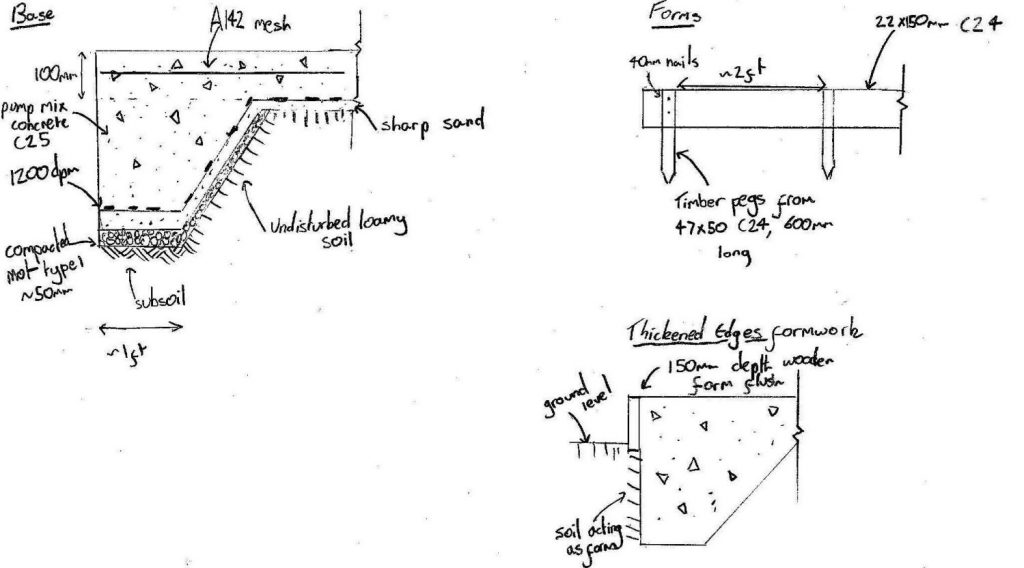 Base
A142 mesh
100mm
pump mix
concrete
C25
1200 dpm
compacted
mot type 1
~50mm
sharp sand
undisturbed loamy
soil
subsoil
~1ft
Forms
22x150mm C24
40mm nails
~2ft
Timber pegs from
47x50 C24, 600mm
long
Thickened Edges formwork
150mm depth wooden
form flush
ground
level
soil acting
as form